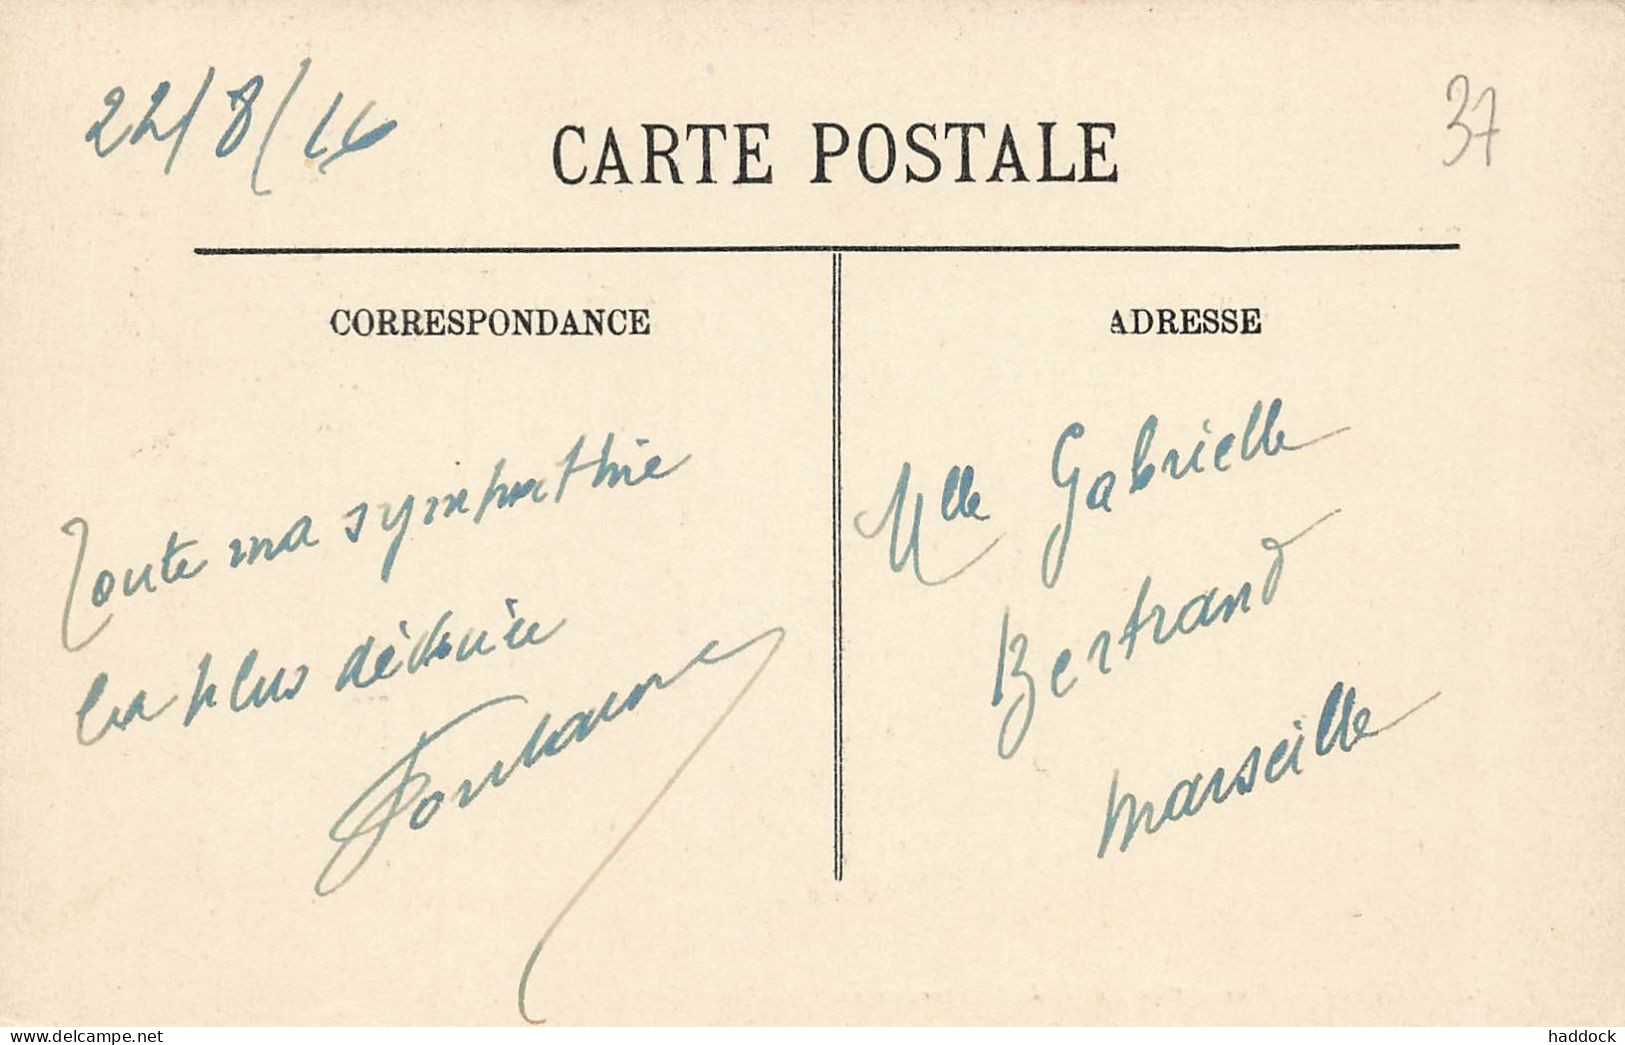 22/8/16
CARTE POSTALE
37
CORRESPONDANCE
Toute ma sympathie
la plus dévouée
ADRESSE
Mlle Gabrielle
Bertrand
Marseille
delcampe.net
haddock